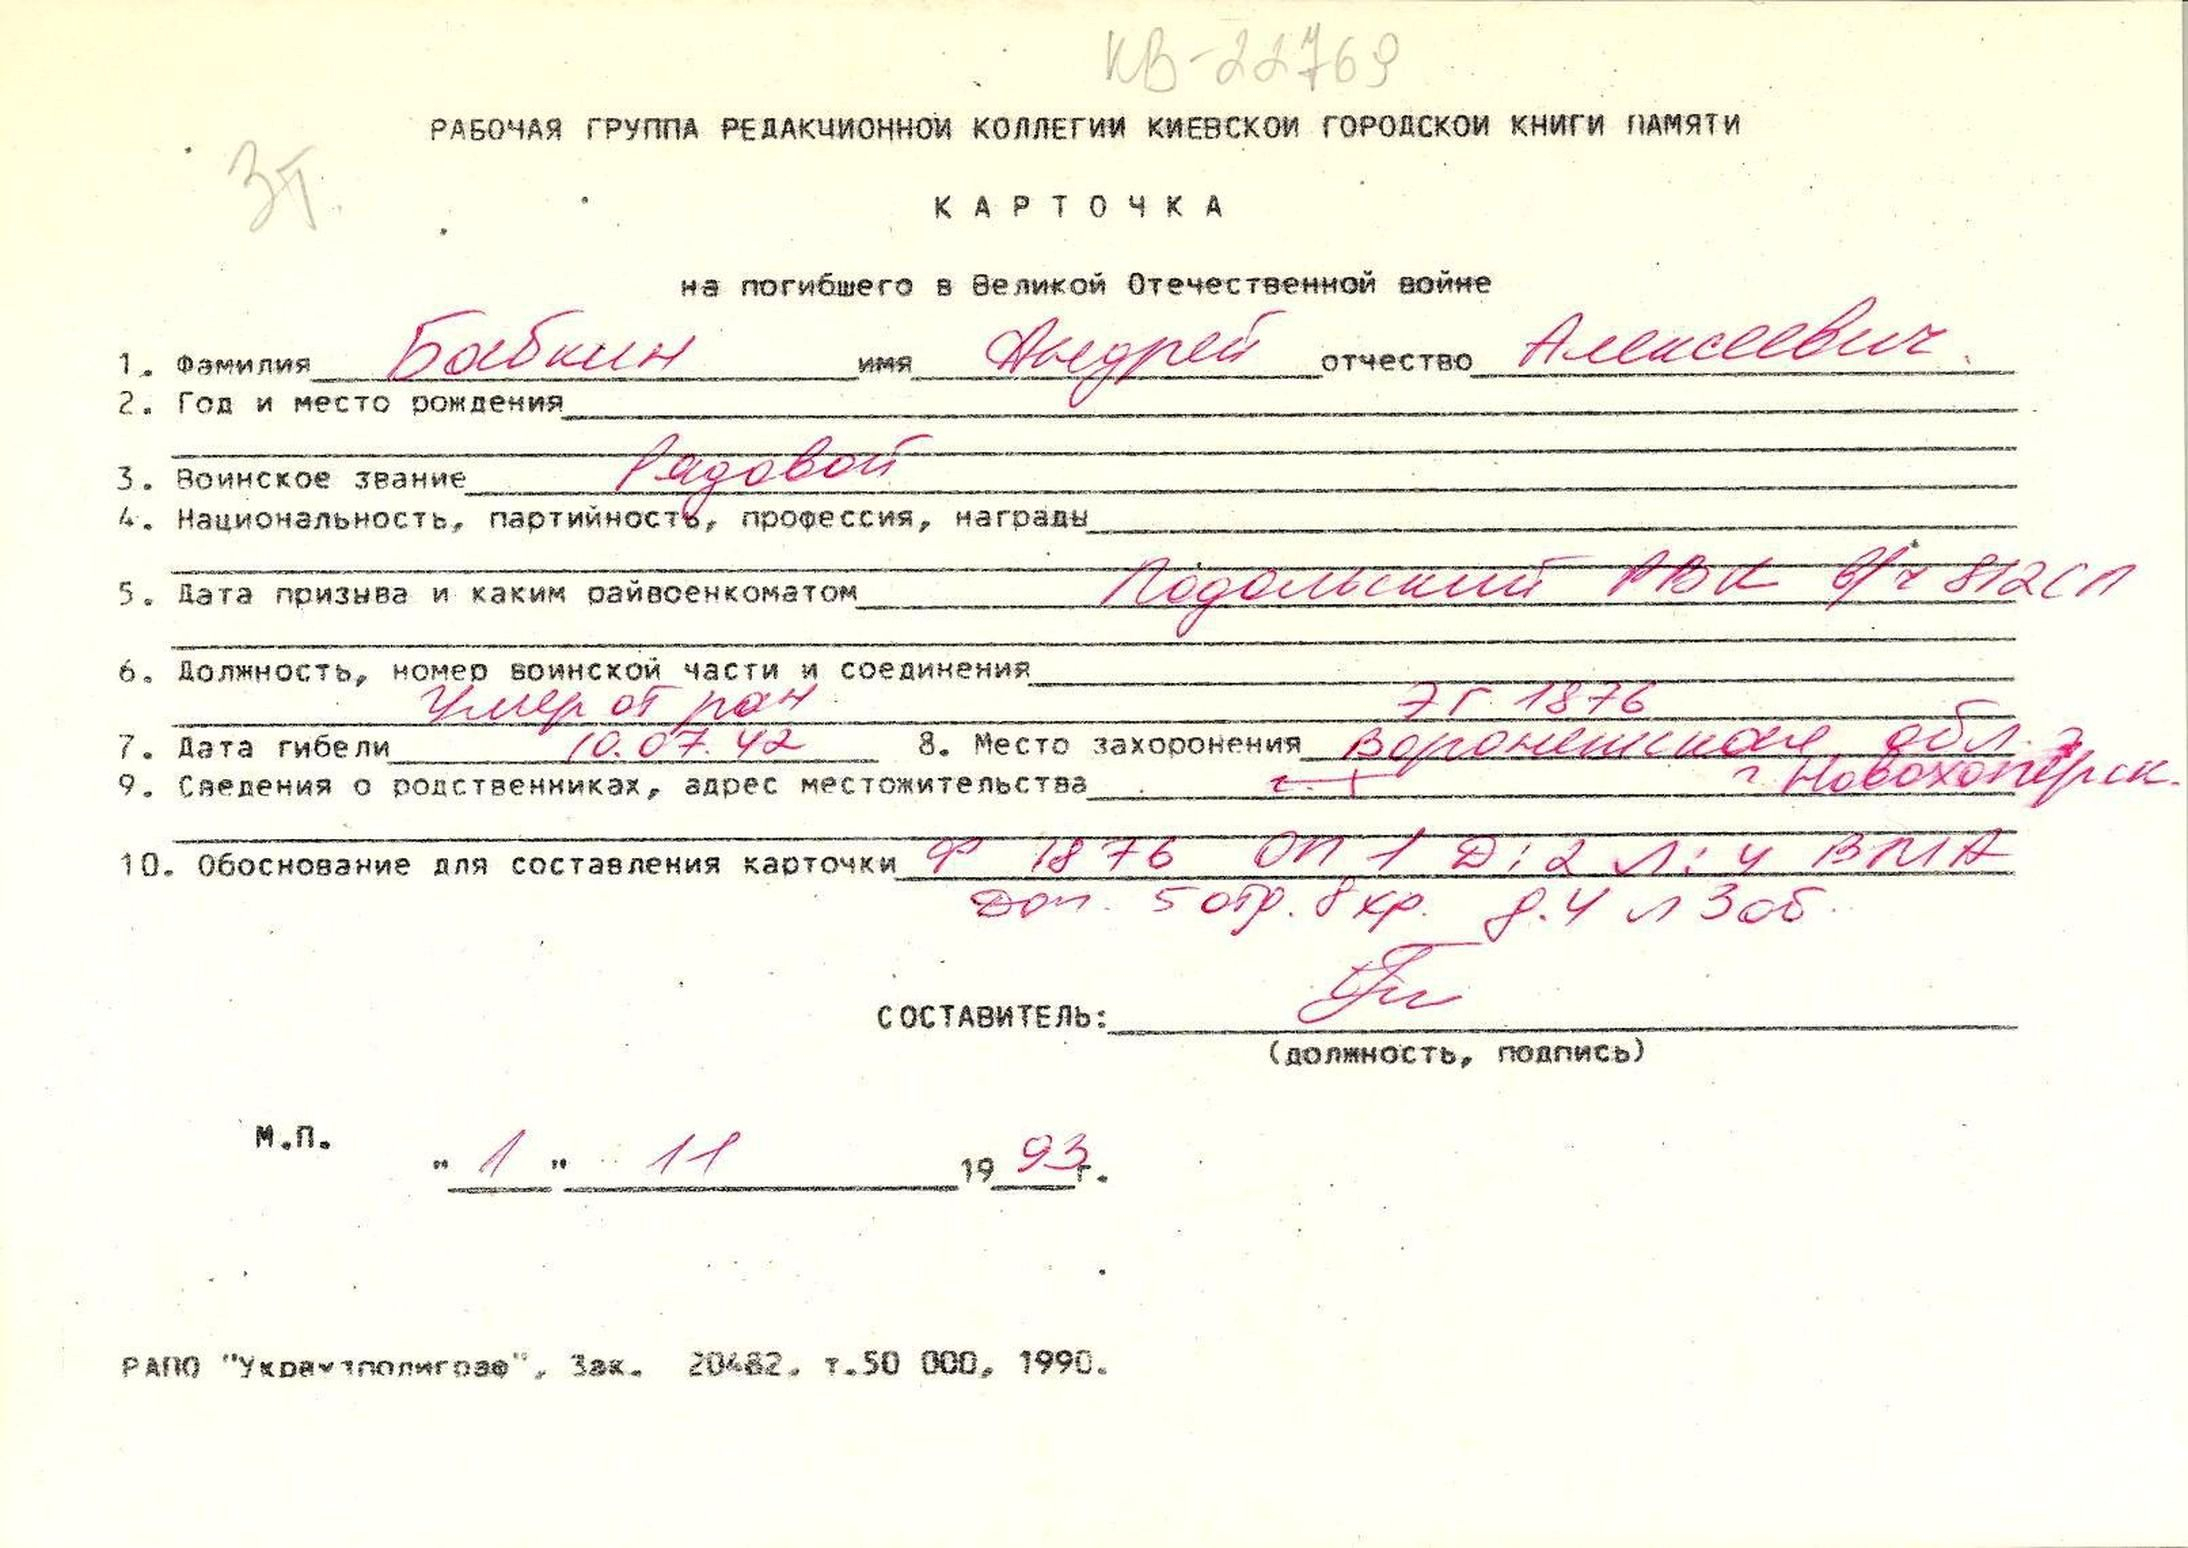 КВ-22769
РАБОЧАЯ ГРУППА РЕДАКЦИОННОЙ КОЛЛЕГИИ КИЕВСКОЙ ГОРОДСКОЙ КНИГИ ПАМЯТИ
КАРТОЧКА
на погибшего в Великой Отечественной войне
1. Фамилия Бабкин имя Андрей отчество Алексеевич.
2. Год и место рождения
3. Воинское звание Рядовой
4. Национальность, партийность, профессия, награды
5. Дата призыва и каким райвоенкоматом Подольский РВК в/ч 812СП
6. Должность, номер воинской части и соединения
Умер от ран ЭГ 1876
7. Дата гибели 10.07.42 8. Место захоронения Воронежская обл.
9. Сведения о родственниках, адрес местожительства г. Новохопёрск.
10. Обоснование для составления карточки Ф 1876 ОП 1 Д:2 Л:4 ВМА
Доп. 5 отр. 8 хр. д.4 л 3 об.
СОСТАВИТЕЛЬ:
(должность, подпись)
М.П.
"1" 11 1993г.
РАПО "Укрвузполиграф", Зак. 20482. т.50 000, 1990.